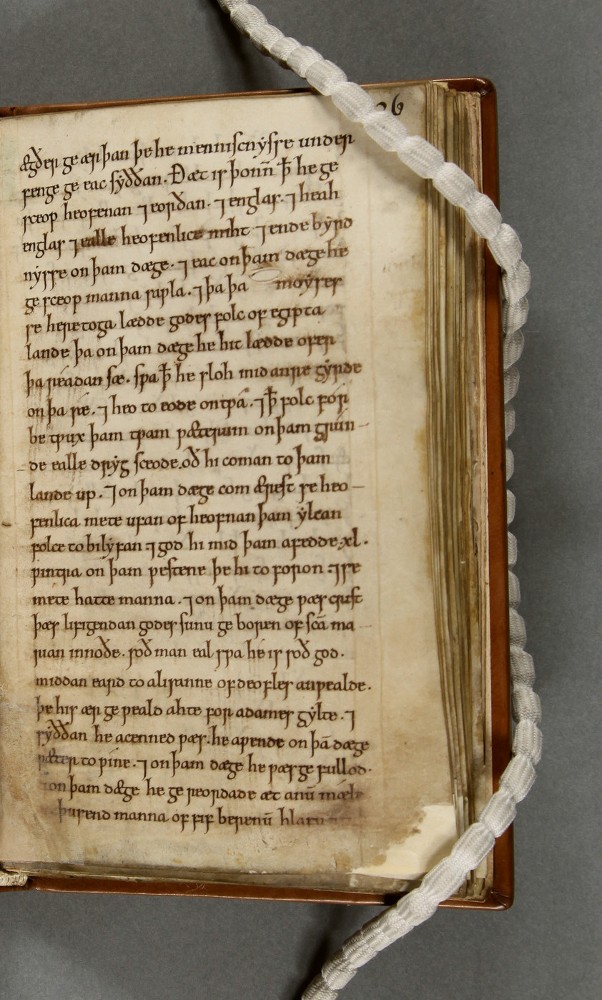 26
ægðer ge ær þan þe he menniscnysse under
fenge ge eac syððan. Ðæt is þonñ ꝥ he ge
sceop heofenan ⁊ eorðan. ⁊ englas. ⁊ heah
englas ⁊ ealle heofenlice miht ⁊ ende byrd
nysse on þam dæge. ⁊ eac on þam dæge he
ge sceop manna sapla. ⁊ þa þa moyses
se heretoga lædde godes folc of egipta
lande þa on þam dæge he hit lædde ofer
þa readan sæ. sƿa ꝥ he sloh mid anre gyrde
on þa sæ. ⁊ heo to eode on tƿa. ⁊ ꝥ folc for
be tƿux þam tƿam ƿæterum on þam grun
de ealle dryg sceode. oð hi coman to þam
lande up. ⁊ on þam dæge com ærest se heo
fenlica mete ufan of heofnan þam ylcan
folce to bilyfan ⁊ god hi mid þam afedde. xl.
ƿintra on þam ƿestene þe hi to foron. ⁊ se
mete hatte manna. ⁊ on þam dæge ƿæs crist
þæs lifigendan godes sunu ge boren of sc̄a ma
rian innoðe. soð man eal sƿa he is soð god.
middan eard to alisanne of deofles anƿealde.
þe his ær ge ƿeald ahte for adames gylte. ⁊
syððan he acenned ƿæs. he aƿende on þā dæge
ƿæter to ƿine. ⁊ on þam dæge he ƿæs ge fullod.
⁊ on þam dæge he ge reordade æt anū mæle
þusend manna of fif berenū